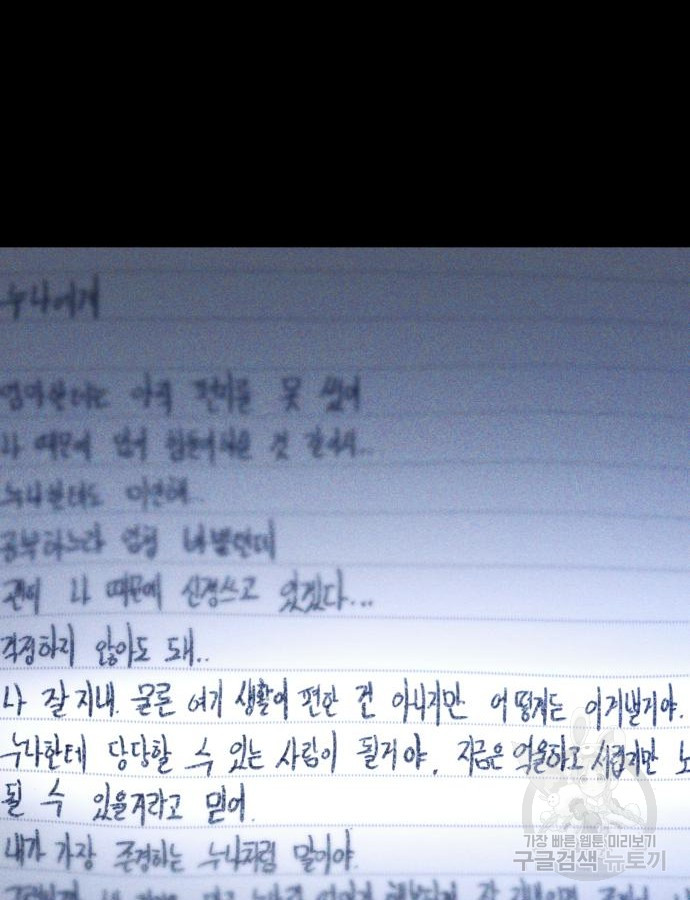 누나에게
엄마한테는 아직 편지를 못 썼어
나 때문에 엄마 힘들어하는 것 같아서...
누나한테도 미안해..
공부하느라 엄청 바쁠텐데
괜히 나 때문에 신경쓰고 있겠다...
걱정하지 않아도 돼..
나 잘 지내. 물론 여기 생활이 편한 건 아니지만 어떻게든 이겨낼거야.
누나한테 당당할 수 있는 사람이 될거야. 지금은 억울하고 서럽지만
될 수 있을거라고 믿어.
내가 가장 존경하는 누나처럼 말이야.
가장 빠른 웹툰 미리보기
구글검색 뉴토끼